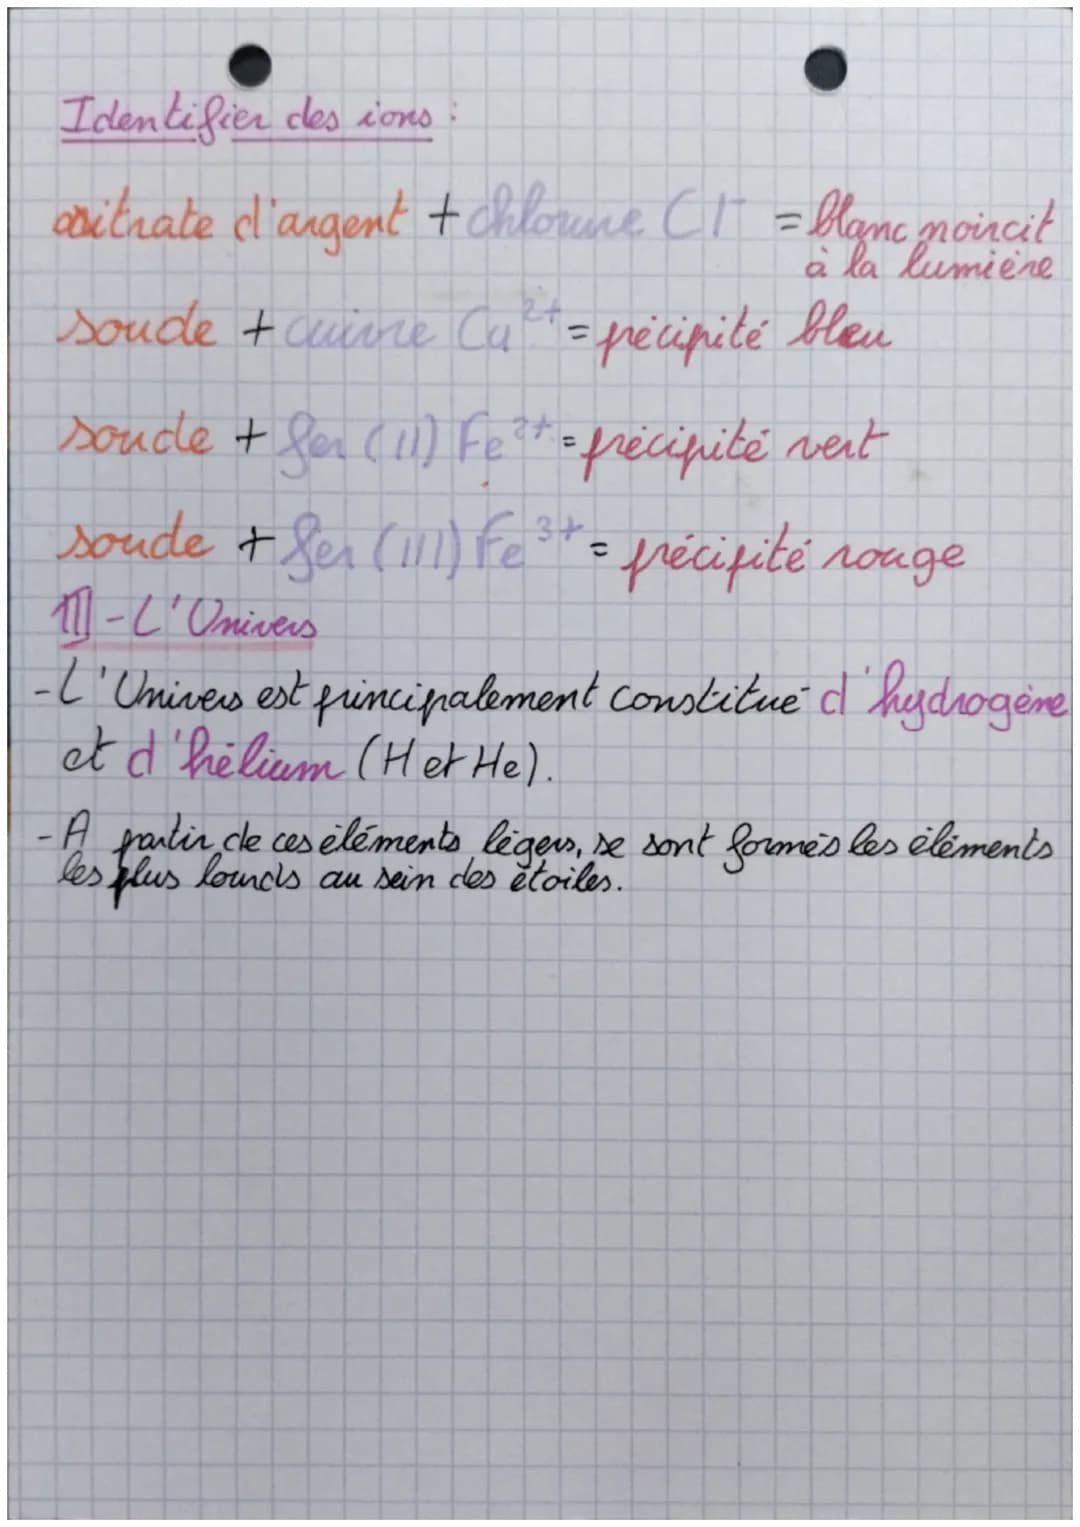 Identifier des ions :
nitrate d'argent + chlorure Cl⁻ = blanc noircit
à la lumière
soude + cuivre Cu²⁺ = précipité bleu
soude + fer (II) Fe²⁺ = précipité vert
soude + fer (III) Fe³⁺ = précipité rouge
III - L'Univers
- L'Univers est principalement constitué d'hydrogène
et d'hélium (H et He).
- A partir de ces éléments légers, se sont formés les éléments
les plus lourds au sein des étoiles.